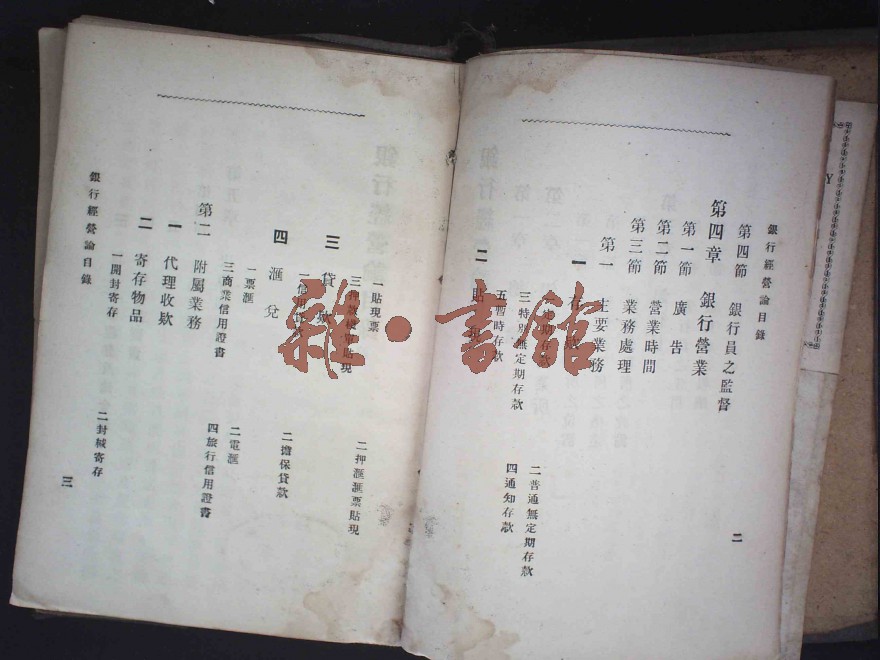 銀行經營論目錄
第四節 銀行員之監督
第四章 銀行營業
第一節 廣告
第二節 營業時間
第三節 業務處理
第一 主要業務
一 存
定期存 二普通無定期存款
三特別無定期存款 四通知存款
五暫時存款
二 貼現
二
一貼現票 二押滙滙票貼現
三押 貼現
三 貸款
一信用 二擔保貸款
四 滙兌
一票滙 二電滙
三商業信用證書 四旅行信用證書
第二 附屬業務
一 代理收欵
二 寄存物品
一開封寄存 二封緘寄存
銀行經營論目錄
三
雜·書館